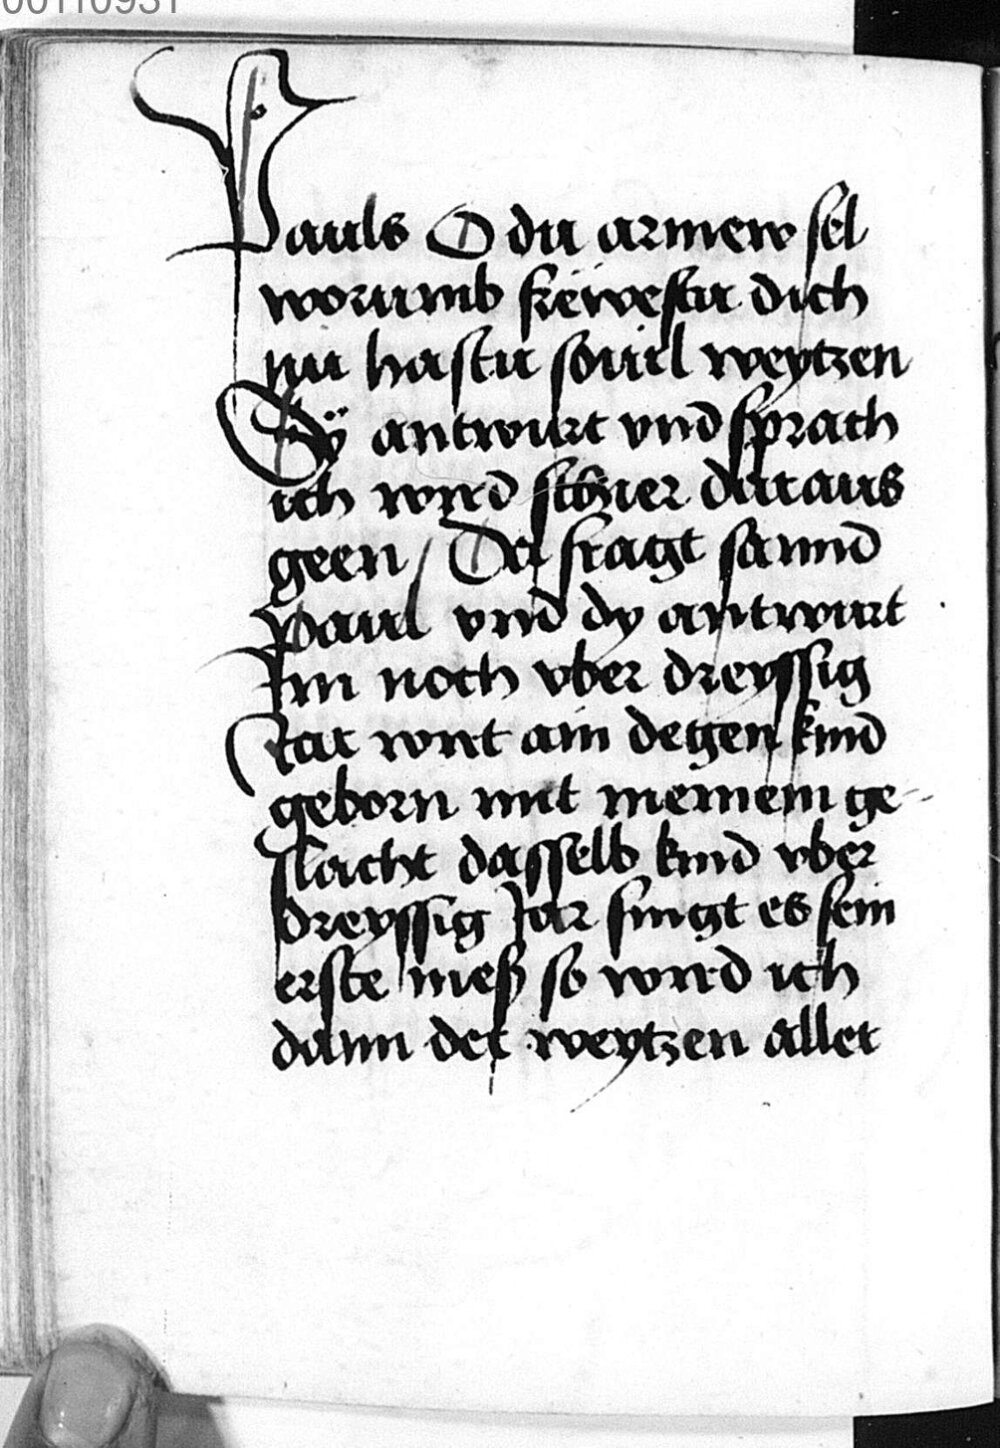 00110931
Pauls O du armew sel
worumb frëwestu dich
nu hastu souil weytzen
Sÿ antwurt vnd sprach
ich wird schier daraus
geen / Da fragt sannd
Paul vnd dy antwurt
Im noch vber dreyssig
Iar wirt ain degen kind
geborn mit meinem ge-
slacht dasselb kind vber
dreyssig Jar singt es sein
erste meß so wird ich
dann der weytzen aller